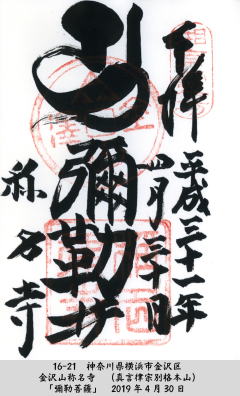 奉拝
平成三十一年
四月三十日
彌勒尊
称名寺
16-21 神奈川県横浜市金沢区
金沢山称名寺 (真言律宗別格本山)
「彌勒菩薩」 2019年4月30日